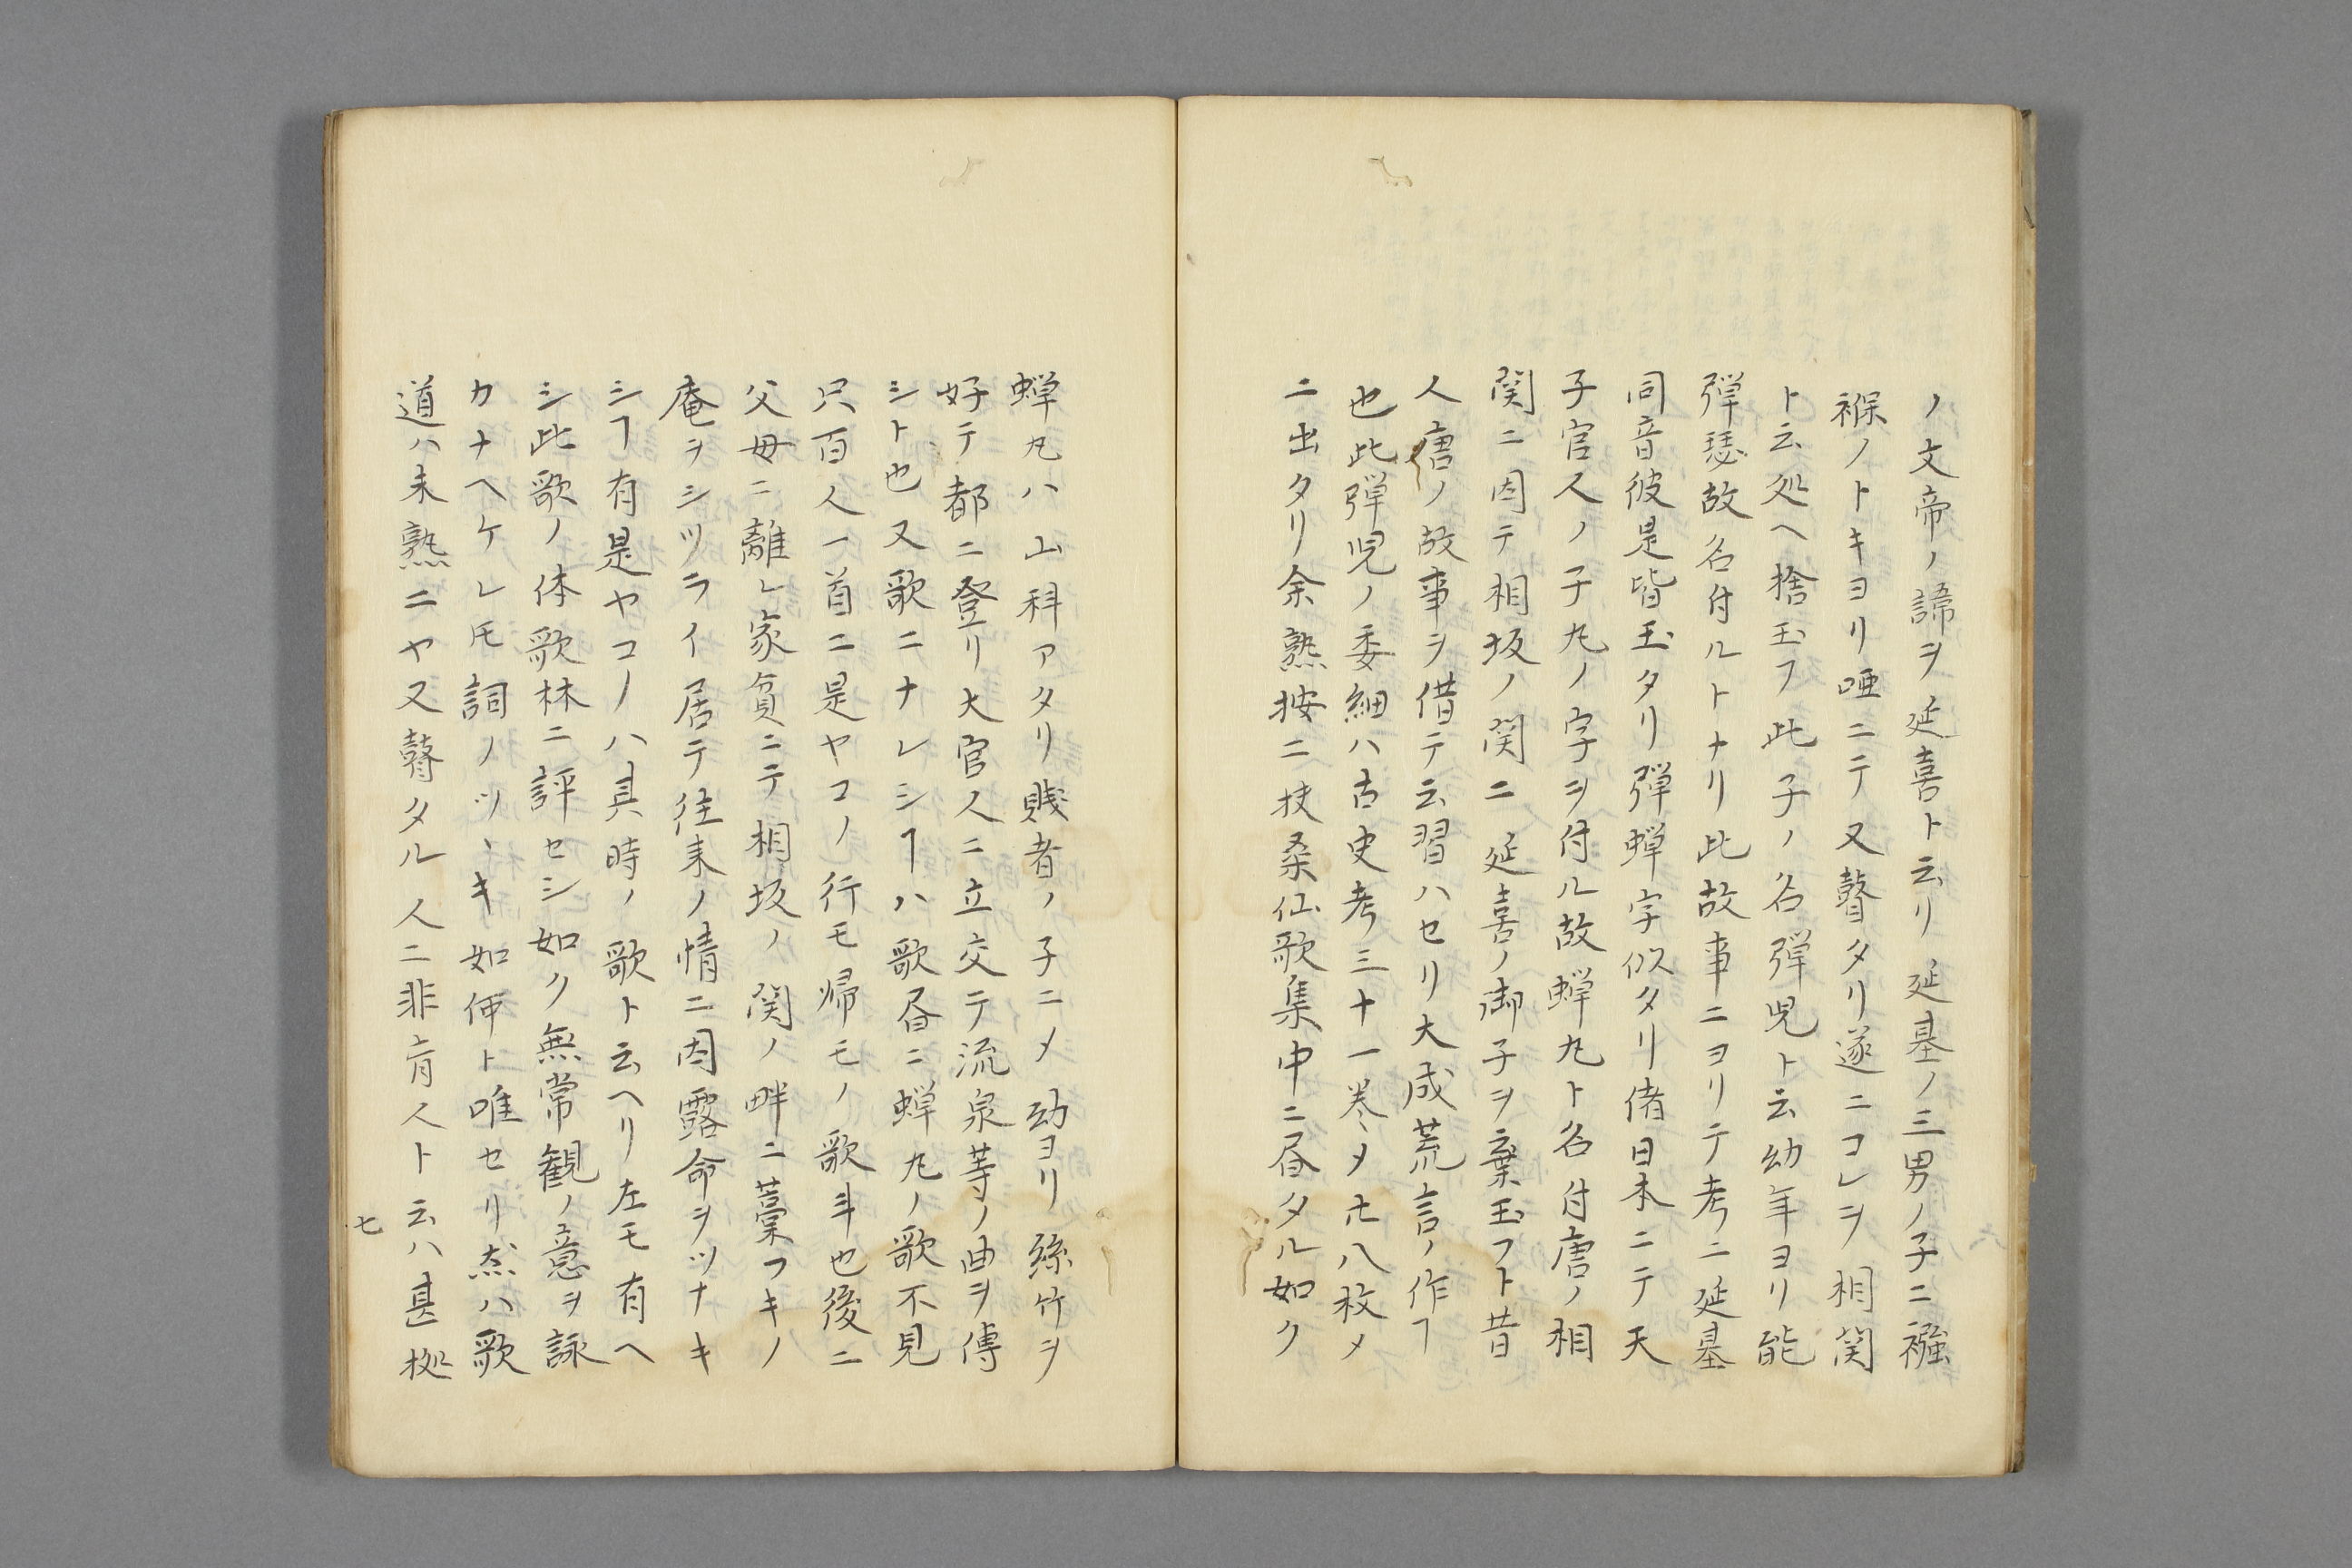 ノ文帝ノ諦ヲ延喜ト云リ延基ノ三男ノ子ニ襁
褓ノトキヨリ唖ニテ又瞽タリ遂ニコレヲ相関
ト云処ヘ捨玉フ此子ノ名弾児ト云幼年ヨリ能
弾瑟故名付ルトナリ此故事ニヨリテ考ニ延基
同音彼是皆玉タリ弾蝉字似タリ偖日本ニテ天
子官人ノ子丸ノ字ヲ付ル故蝉丸ト名付唐ノ相
関ニ因テ相坂ノ関ニ延喜ノ御子ヲ棄玉フト昔
人唐ノ故事ヲ借テ云習ハセリ大成荒言ノ作ヿ
也此弾児ノ委細ハ古史考三十一巻メ卅八枚メ
ニ出タリ余熟按ニ扶桑仙歌集中ニ昼タル如ク
蝉丸ハ山科アタリ賎者ノ子ニメ幼ヨリ絲竹ヲ
好テ都ニ登リ大官人ニ立交テ流泉等ノ曲ヲ傳
シト也又歌ニナレシヿハ歌昼ニ蝉丸ノ歌不見
只百人一首ニ是ヤコノ行モ帰モノ歌斗也後ニ
父母ニ離レ家貧ニテ相坂ノ関ノ畔ニ藁フキノ
庵ヲシツライ居テ往来ノ情ニ因露命ヲツナキ
シヿ有是ヤコノハ其時ノ歌ト云ヘリ左モ有ヘ
シ此歌ノ体歌林ニ評セシ如ク無常観ノ意ヲ詠
カナヘケレ𪜈詞ノツヽキ如何ト唯セリ然ハ歌
道ハ未熟ニヤ又瞽タル人ニ非盲人ト云ハ甚拠
七